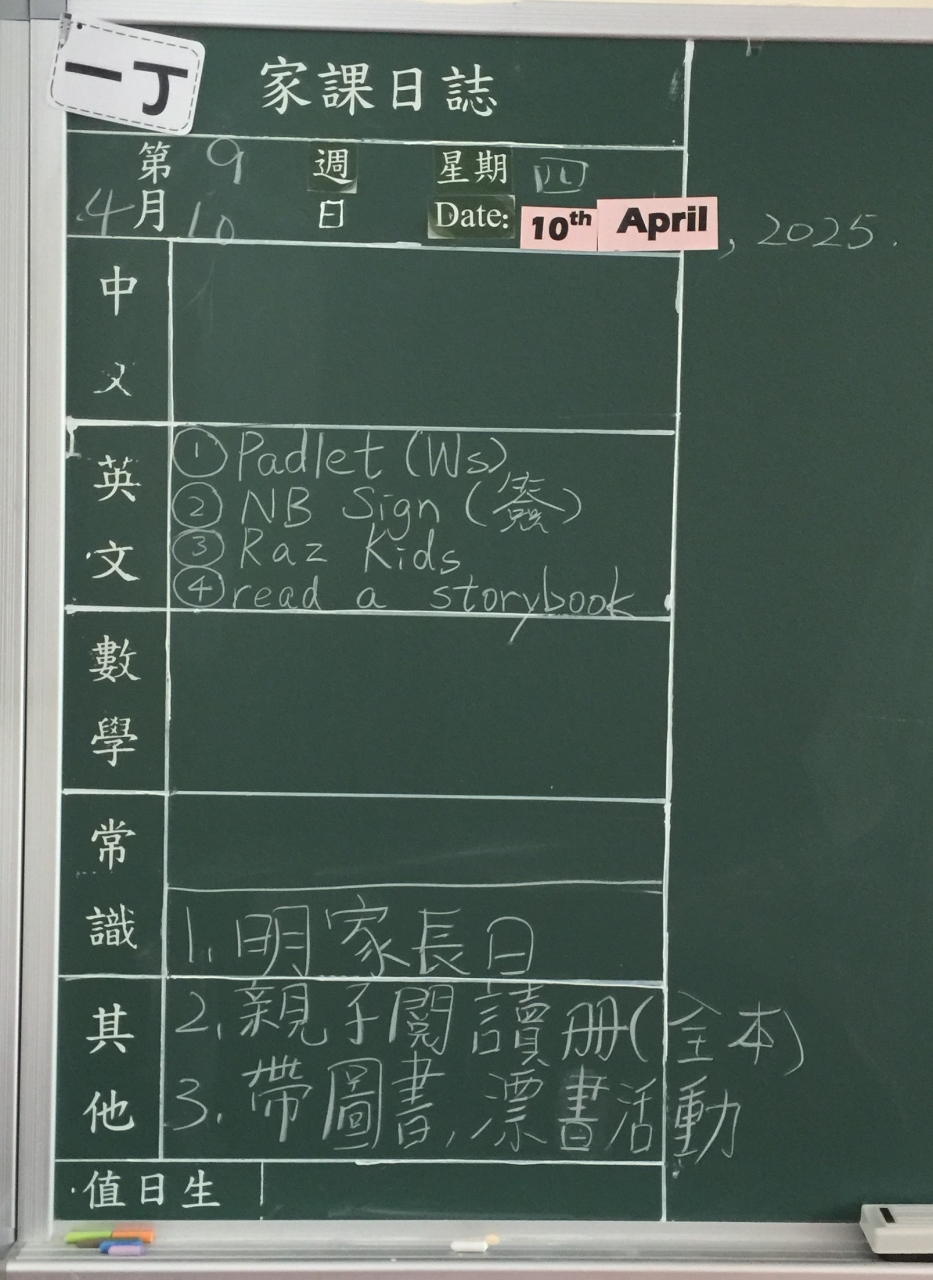 一丁
家課日誌
第 9 週 星期 四
4 月 10 日 Date: 10th April, 2025.
中文
英文
① Padlet (Ws)
② NB Sign (簽)
③ Raz Kids
④ read a storybook
數學
常識
1. 明家長日
其他
2. 親子閱讀册(全本)
3. 帶圖書, 漂書活動
值日生